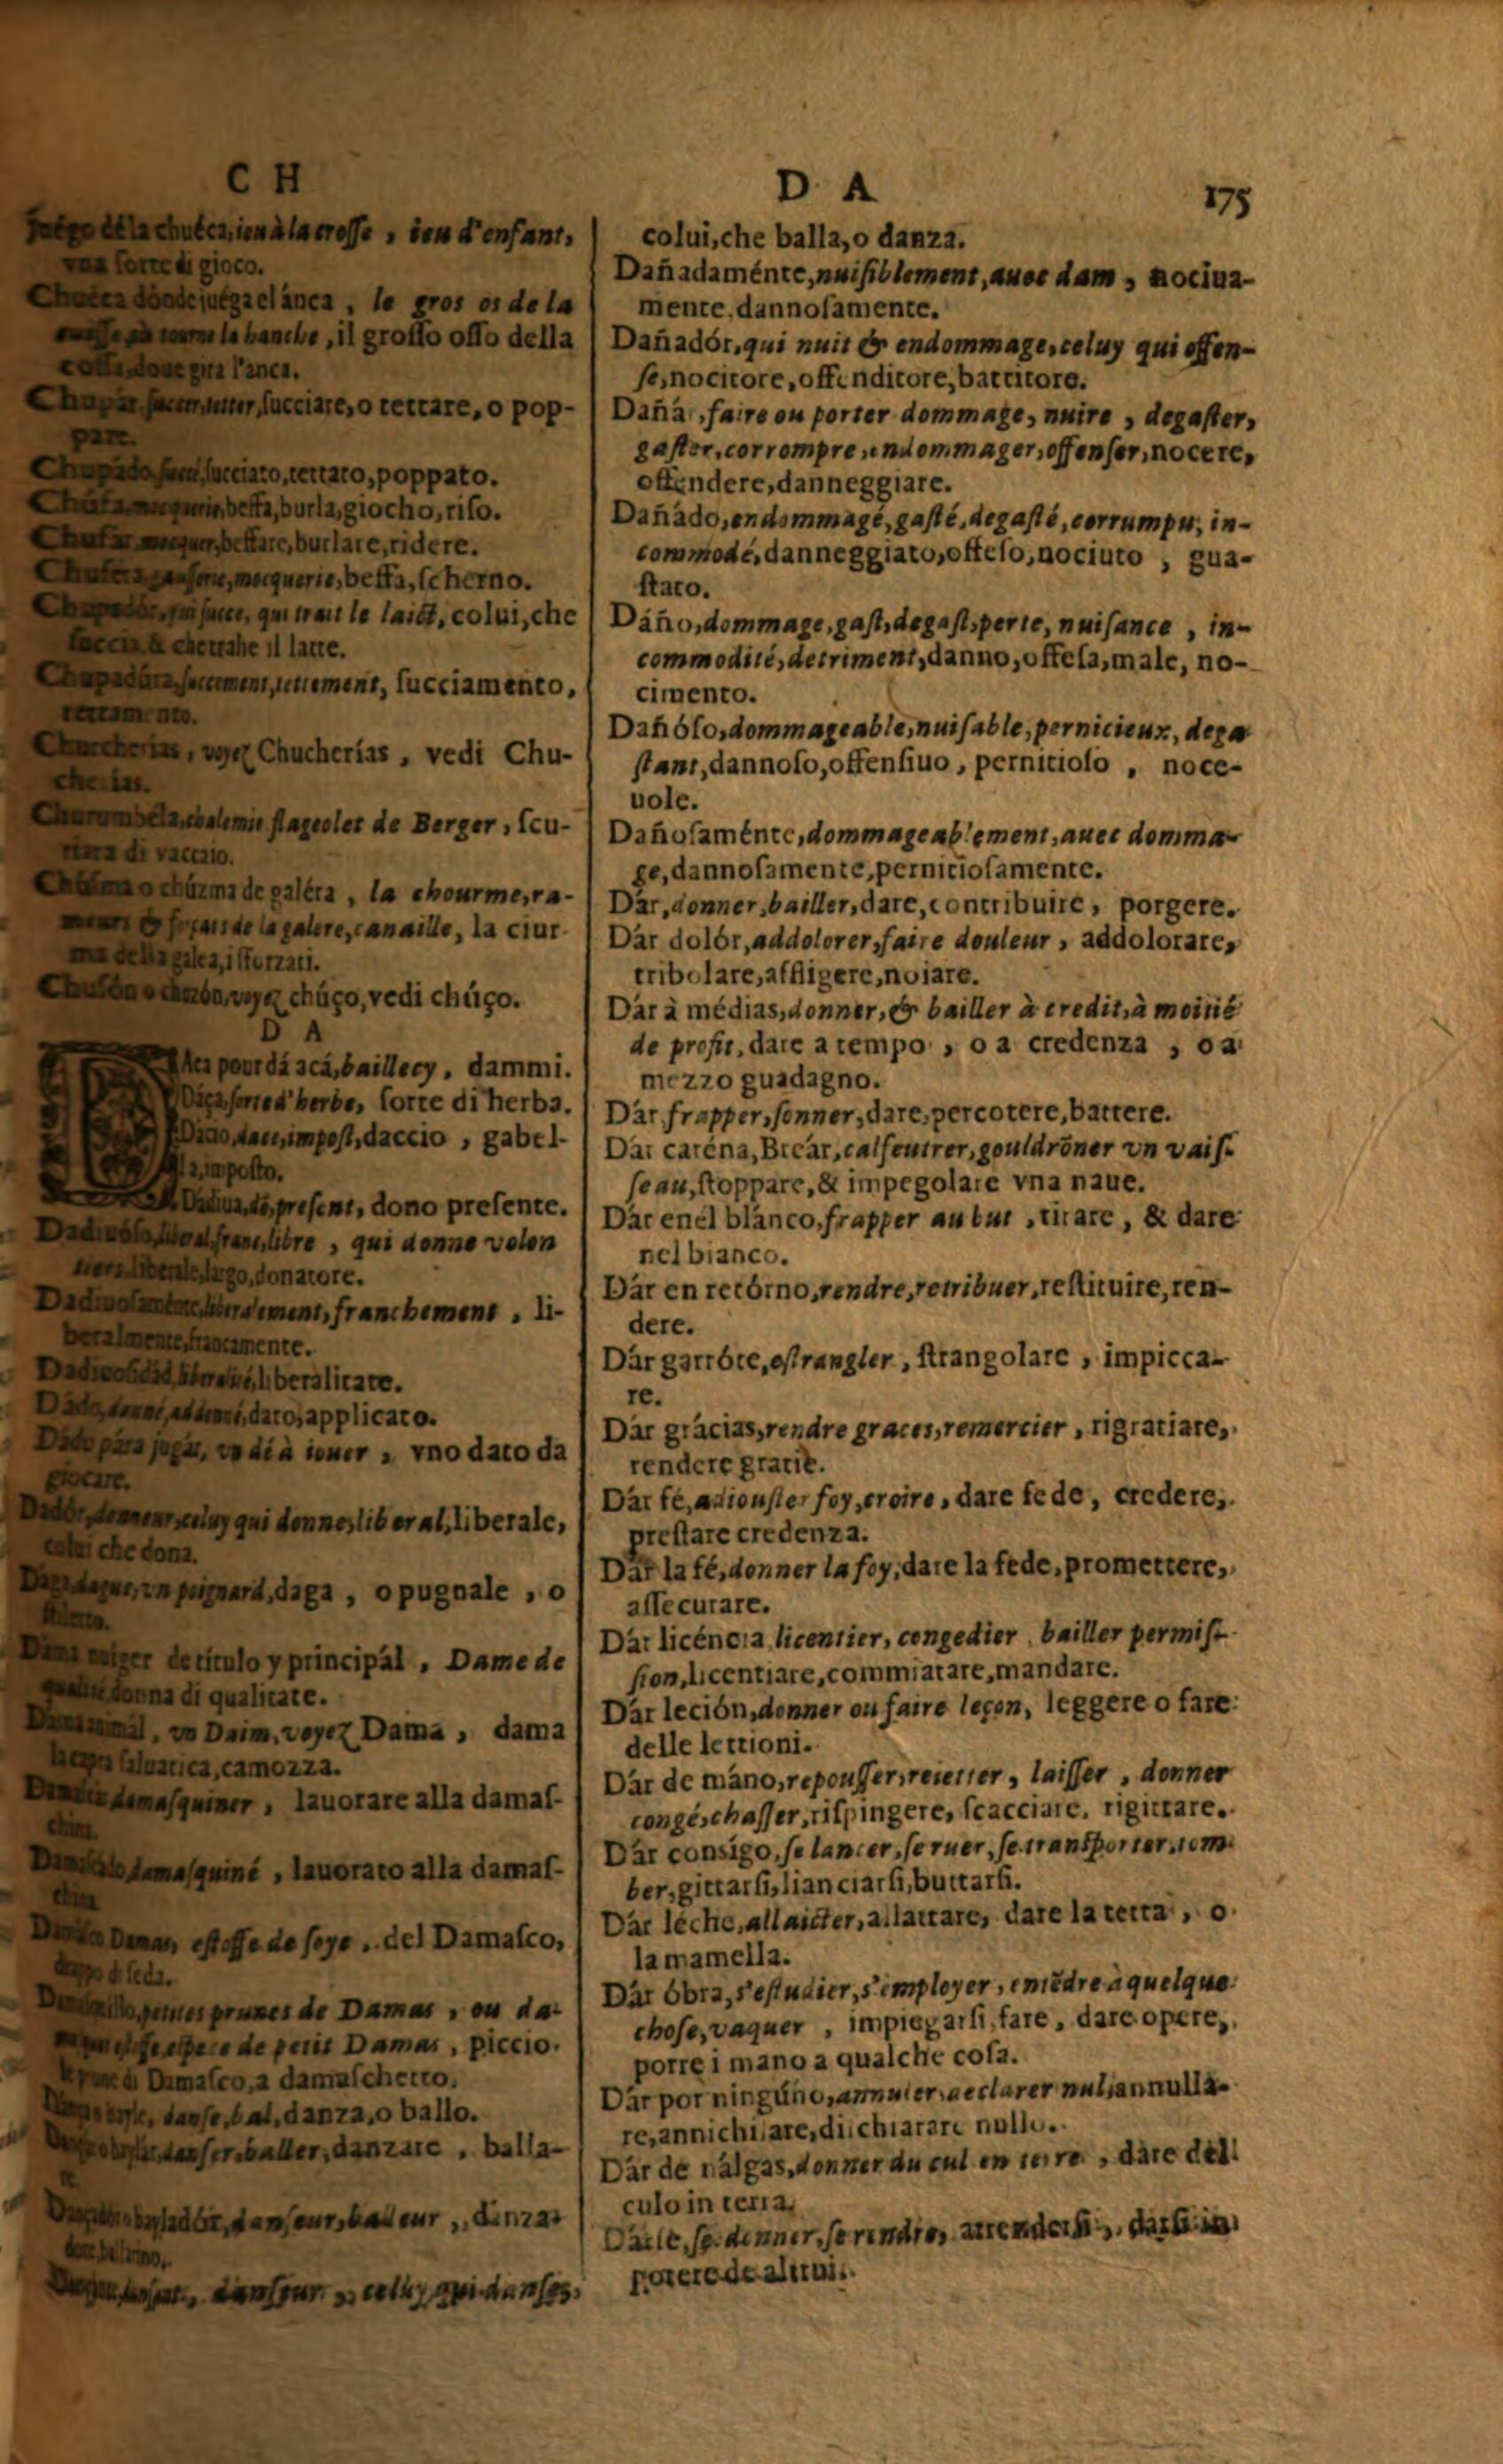 C H
Juégo dé la chuéca, ieu à la crosse, ieu d'enfant,
vna sorte di gioco.
Chuéca dónde juéga el ánca, le gros os de la
où tourne la hanche, il grosso osso della
cossa, doue gira l'anca.
Chupár, succer, tetter, succiare, o tettare, o pop-
pare.
Chupádo, succé, succiato, tettato, poppato.
Chúfa, mocquerie, beffa, burla, giocho, riso.
Chufár, mocquer, beffare, burlare, ridere.
gausserie, mocquerie, beffa, scherno.
Chupadór, qui succe, qui trait le laict, colui, che
succia & che trahe il latte.
Chupadúra, succement, tettement, succiamento,
tettamento.
Churcherías, voyez Chucherías, vedi Chu-
cherias.
Churumbéla, chalemie flageolet de Berger, scu-
di vaccaio.
Chúsma o chúzma de galéra, la chourme, ra-
meurs & forçats de la galere, canaille, la ciur-
ma della galea, i sforzati.
Chusón o chuzón, voyez chúço, vedi chúço.
D A
DAca pour dá acá, baillecy, dammi.
Daça, sorte d'herbe, sorte di herba.
Dacio, dace, impost, daccio, gabel-
la, imposto.
Dádiua, dõ, present, dono presente.
Dadiuóso, liberal, franc, libre, qui donne volon
tiers, liberale, largo, donatore.
Dadiuosaménte, liberalement, franchement, li-
beralmente, francamente.
Dadiuosidád, liberalité, liberalitate.
Dádo, donné, addonné, dato, applicato.
Dádo pára jugár, vn dé à iouer, vno dato da
giocare.
Dadór, donneur, celuy qui donne, liberal, liberale,
colui che dona.
Dága, dague, vn poignard, daga, o pugnale, o
stiletto.
Dáma muger de título y principál, Dame de
qualité, donna di qualitate.
Dama animál, vn Daim, voyez Dama, dama
la capra saluatica, camozza.
damasquiner, lauorare alla damas-
china.
damasquiné, lauorato alla damas-
china
Damas, estoffe de soye, del Damasco,
drappo di seda.
petites prunes de Damas, ou da-
de petit Damas, piccio-
di Damasco, a damaschetto.
danse, bal, danza, o ballo.
danser, baller, danzare, balla-
re
bayladór, danseur, baleur, danza-
tore, ballarino.
danseur, celuy qui danse,
D A
175
colui, che balla, o danza.
Dañadaménte, nuisiblement, auec dam, nociua-
mente, dannosamente.
Dañadór, qui nuit & endommage, celuy qui offen-
se, nocitore, offenditore, battitore.
Dañár, faire ou porter dommage, nuire, degaster,
gaster, corrompre, endommager, offenser, nocere,
offendere, danneggiare.
Dañádo, endommagé, gasté, degasté, corrumpu, in-
commodé, danneggiato, offeso, nociuto, gua-
stato.
Dáño, dommage, gast, degast, perte, nuisance, in-
commodité, detriment, danno, offesa, male, no-
cimento.
Dañóso, dommageable, nuisable, pernicieux, dega
stant, dannoso, offensiuo, pernitioso, noce-
uole.
Dañosaménte, dommageablement, auec domma-
ge, dannosamente, pernitiosamente.
Dár, donner, bailler, dare, contribuire, porgere.
Dár dolór, addolorer, faire douleur, addolorare,
tribolare, affligere, noiare.
Dár à médias, donner, & bailler à credit, à moitié
de profit, dare a tempo, o a credenza, o a
mezzo guadagno.
Dár, frapper, sonner, dare, percotere, battere.
Dár caréna, Breár, calfeutrer, gouldrõner vn vais-
seau, stoppare, & impegolare vna naue.
Dár en él blánco, frapper au but, tirare, & dare
nel bianco.
Dár en retórno, rendre, retribuer, restituire, ren-
dere.
Dár garróte, estrangler, strangolare, impicca-
re.
Dár grácias, rendre graces, remercier, rigratiare,
rendere gratiè.
Dár fé, adiouster foy, croire, dare fede, credere,
prestare credenza.
Dár la fé, donner la foy, dare la fede, promettere,
assecurare.
Dár licéncia, licentier, congedier, bailler permis-
sion, licentiare, commiatare, mandare.
Dár leción, donner ou faire leçon, leggere o fare
delle lettioni.
Dár de máno, repousser, reietter, laisser, donner
congé, chasser, rispingere, scacciare, rigittare.
Dár consígo, se lancer, se ruer, se transporter, tom-
ber, gittarsi, lianciarsi, buttarsi.
Dár léche, allaicter, allattare, dare la tetta, o
la mamella.
Dár óbra, s'estudier, s'employer, entẽdre à quelque
chose, vaquer, impiegarsi, fare, dare opere,
porre i mano a qualche cosa.
Dár por ningúno, annuler, declarer nul, annulla-
re, annichilare, dichiarare nullo.
Dár de nálgas, donner du cul en terre, dàre dèl
culo in terra.
Dárse, se donner, se rendre, arrendersi, darsi in
potere de altrui.